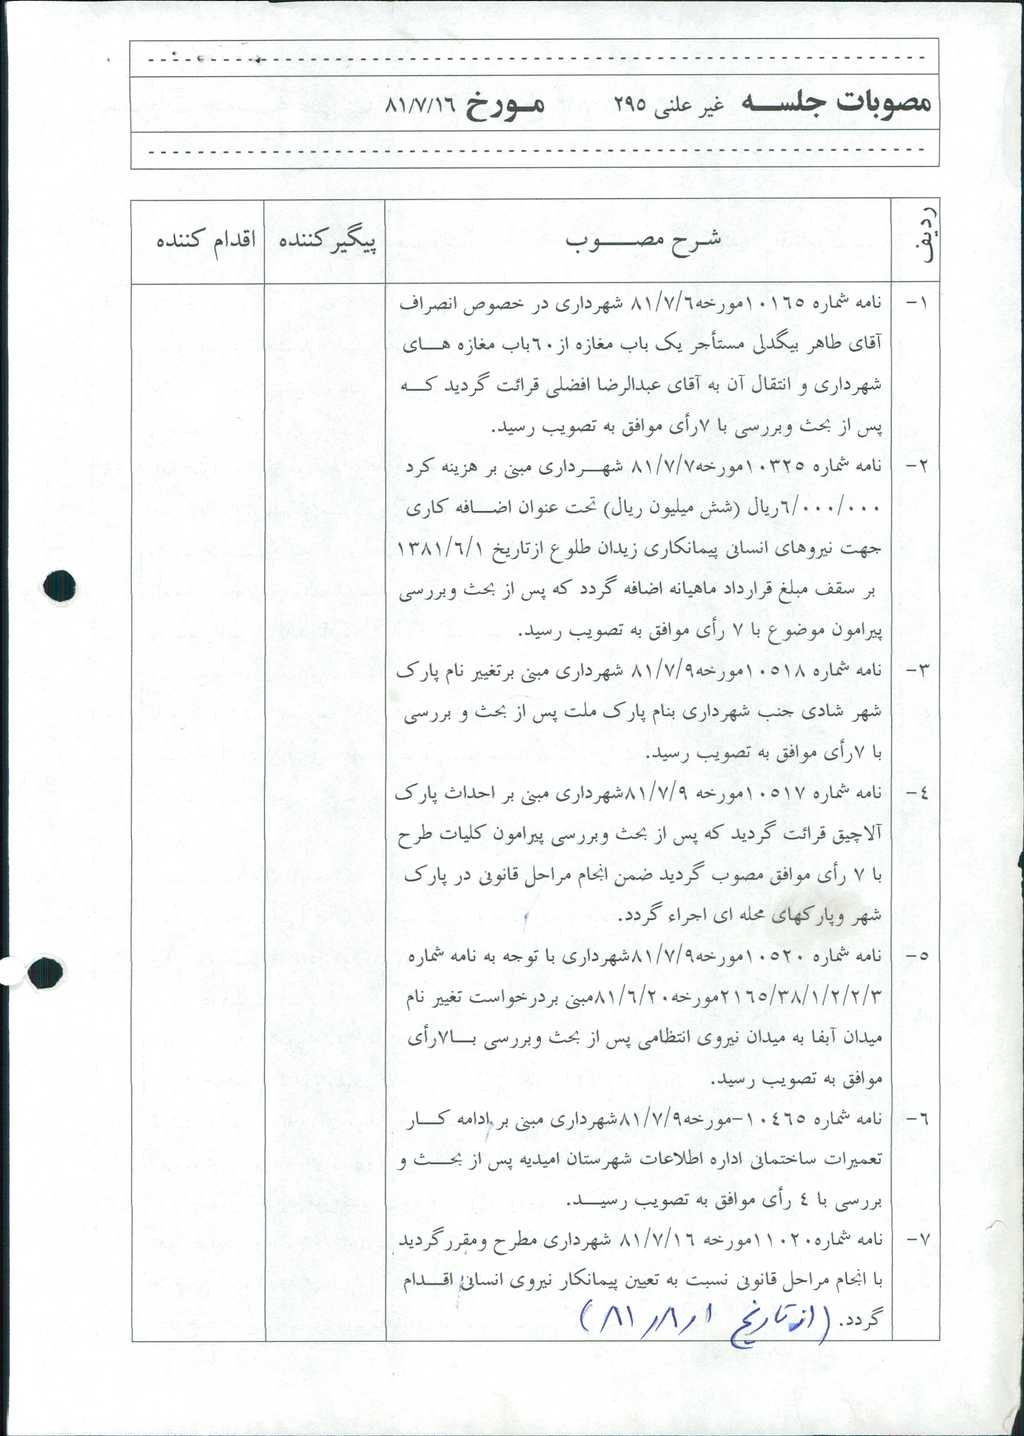 مصوبات جلسه غیر علنی ۲۹۵ مورخ ۸۱/۷/۱۶
ردیف شرح مصوب پیگیرکننده اقدام کننده
۱- نامه شماره ۱۰۱۶۵مورخه۸۱/۷/۶ شهرداری در خصوص انصراف
آقای طاهر بیگدلی مستأجر یک باب مغازه از۶۰باب مغازه های
شهرداری و انتقال آن به آقای عبدالرضا افضلی قرائت گردید که
پس از بحث وبررسی با ۷رأی موافق به تصویب رسید.
۲- نامه شماره ۱۰۳۲۵مورخه۸۱/۷/۷ شهرداری مبنی بر هزینه کرد
۶/۰۰۰/۰۰۰ریال (شش میلیون ریال) تحت عنوان اضافه کاری
جهت نیروهای انسانی پیمانکاری زیدان طلوع ازتاریخ ۱۳۸۱/۶/۱
بر سقف مبلغ قرارداد ماهیانه اضافه گردد که پس از بحث وبررسی
پیرامون موضوع با ۷ رأی موافق به تصویب رسید.
۳- نامه شماره ۱۰۵۱۸مورخه۸۱/۷/۹ شهرداری مبنی برتغییر نام پارک
شهر شادی جنب شهرداری بنام پارک ملت پس از بحث و بررسی
با ۷رأی موافق به تصویب رسید.
۴- نامه شماره ۱۰۵۱۷مورخه ۸۱/۷/۹شهرداری مبنی بر احداث پارک
آلاچیق قرائت گردید که پس از بحث وبررسی پیرامون کلیات طرح
با ۷ رأی موافق مصوب گردید ضمن انجام مراحل قانونی در پارک
شهر وپارکهای محله ای اجراء گردد.
۵- نامه شماره ۱۰۵۲۰مورخه۸۱/۷/۹شهرداری با توجه به نامه شماره
۲۱۶۵/۳۸/۱/۲/۲/۳مورخه۸۱/۶/۲۰مبنی بردرخواست تغییر نام
میدان آبفا به میدان نیروی انتظامی پس از بحث وبررسی با۷رأی
موافق به تصویب رسید.
۶- نامه شماره ۱۰۴۶۵-مورخه۸۱/۷/۹شهرداری مبنی بر ادامه کار
تعمیرات ساختمانی اداره اطلاعات شهرستان امیدیه پس از بحث و
بررسی با ۴ رأی موافق به تصویب رسید.
۷- نامه شماره۱۱۰۲۰مورخه ۸۱/۷/۱۶ شهرداری مطرح ومقررگردید
با انجام مراحل قانونی نسبت به تعیین پیمانکار نیروی انسانی اقدام
گردد. (از تاریخ ۸۱٫۸٫۱)